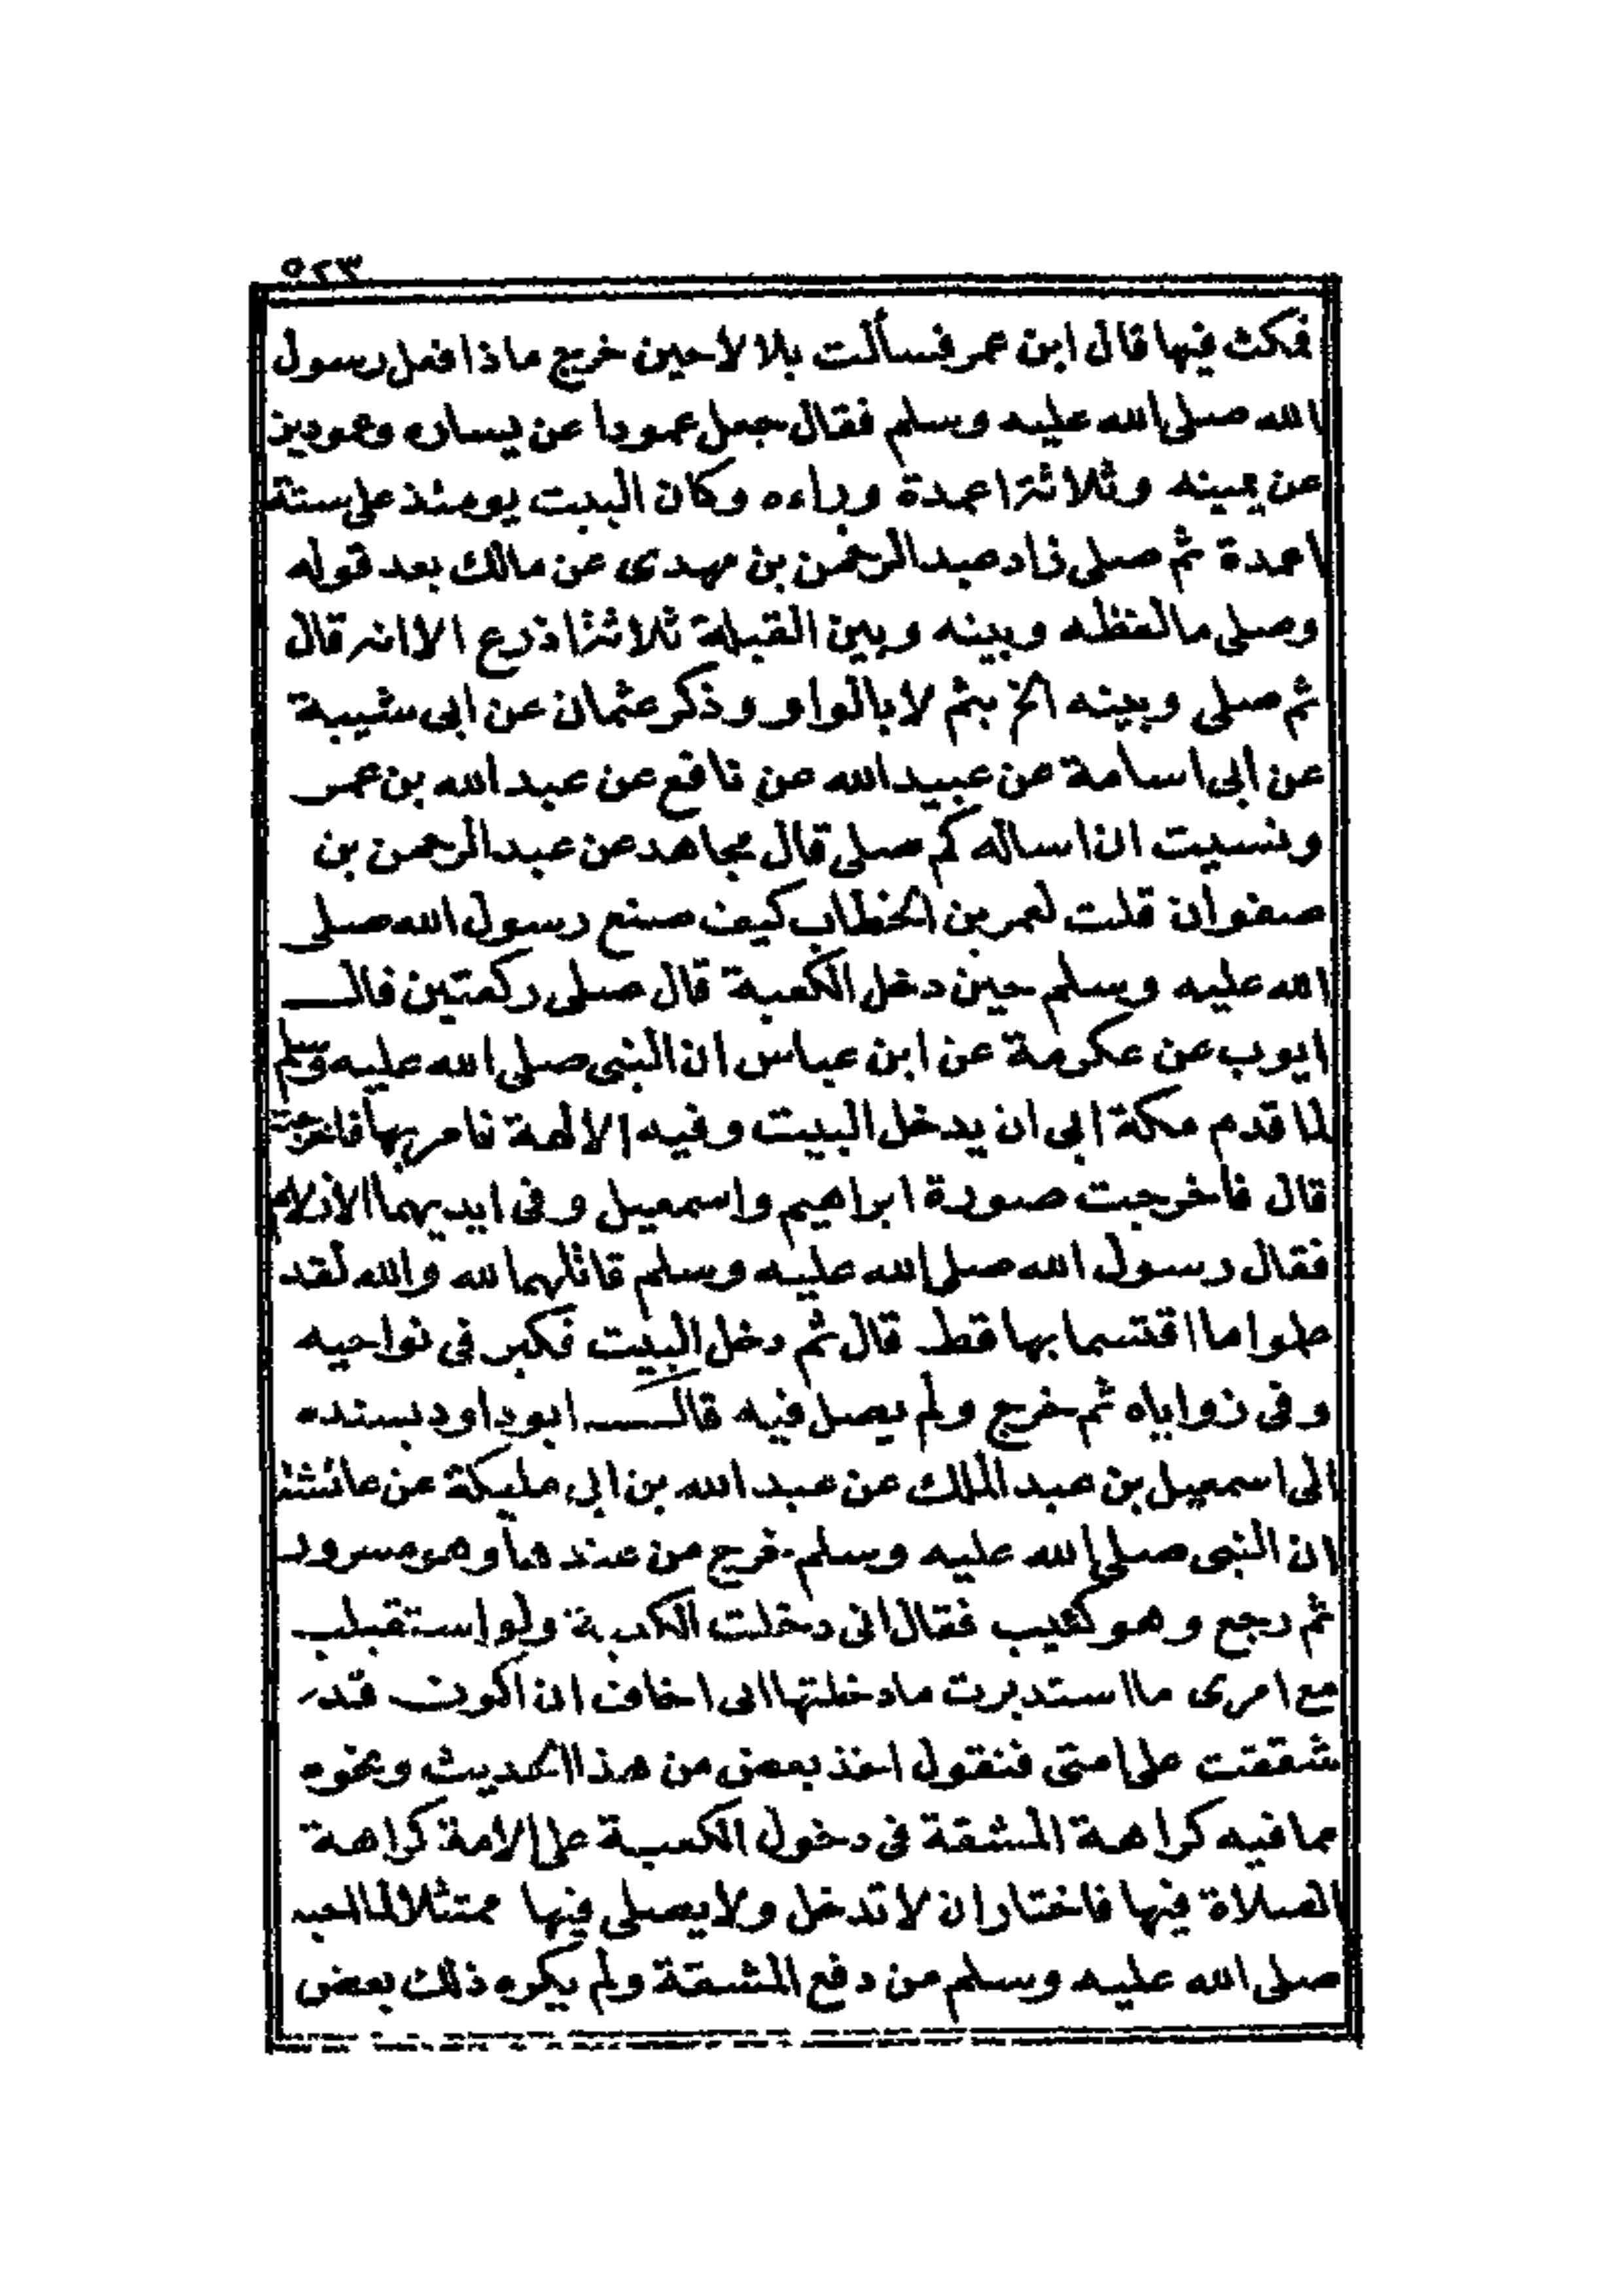 ٥٢٣
فمكث فيها قال ابن عمر فسألت بلالا حين خرج ماذا فعل رسول
الله صلى الله عليه وسلم فقال جعل عمودا عن يساره وعمودين
عن يمينه وثلاثة اعمدة وراءه وكان البيت يومئذ على ستة
اعمدة ثم صلى زاد عبد الرحمن بن مهدى عن مالك بعد قوله
وصلى ما لفظه وبينه وبين القبلة ثلاثة اذرع الا انه قال
ثم صلى وبينه الخ بثم لا بالواو وذكر عثمان عن ابى شيبة
عن ابى اسامة عن عبيد الله عن نافع عن عبد الله بن عمر
ونسيت ان اساله كم صلى قال مجاهد عن عبد الرحمن بن
صفوان قلت لعمر بن الخطاب كيف صنع رسول الله صلى
الله عليه وسلم حين دخل الكعبة قال صلى ركعتين قال
ايوب عن عكرمة عن ابن عباس ان النبى صلى الله عليه وسلم
لما قدم مكة ابى ان يدخل البيت وفيه الالهة فامر بها فاخرجت
قال فاخرجت صورة ابراهيم واسمعيل وفى ايديهما الازلام
فقال رسول الله صلى الله عليه وسلم قاتلهم الله والله لقد
علموا ما اقتسما بها قط قال ثم دخل البيت فكبر فى نواحيه
وفى زواياه ثم خرج ولم يصل فيه قال ابو داود بسنده
الى اسمعيل بن عبد الملك عن عبد الله بن ابى مليكة عن عائشة
ان النبى صلى الله عليه وسلم خرج من عندها وهو مسرور
ثم رجع وهو كئيب فقال انى دخلت الكعبة ولو استقبلت
مع امرى ما استدبرت ما دخلتها انى اخاف ان اكون قد
شققت على امتى فنقول اخذ بعض من هذا الحديث ونحوه
مما فيه كراهة المشقة فى دخول الكعبة على الامة كراهة
الصلاة فيها فاختار ان لا تدخل ولا يصلى فيها ممتثلا لما احبه
صلى الله عليه وسلم من دفع المشقة ولم يكره ذلك بعض